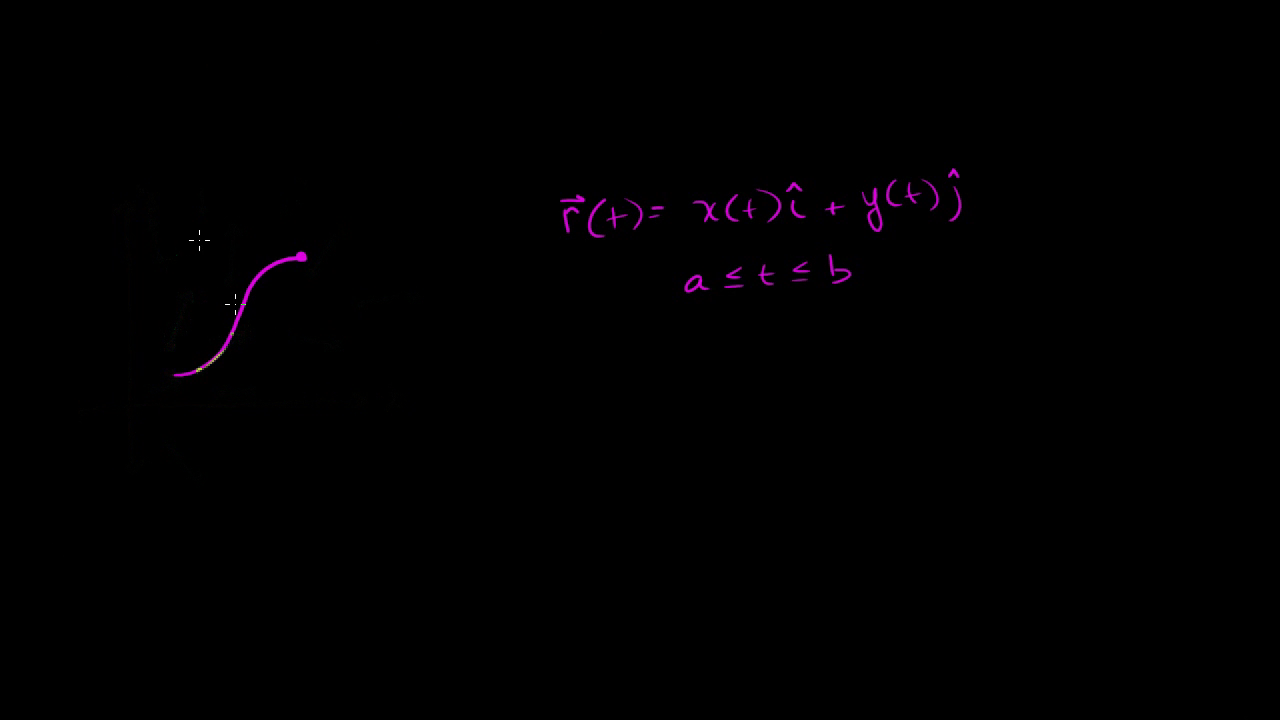 r⃗(t) = x(t) î + y(t) ĵ
a ≤ t ≤ b